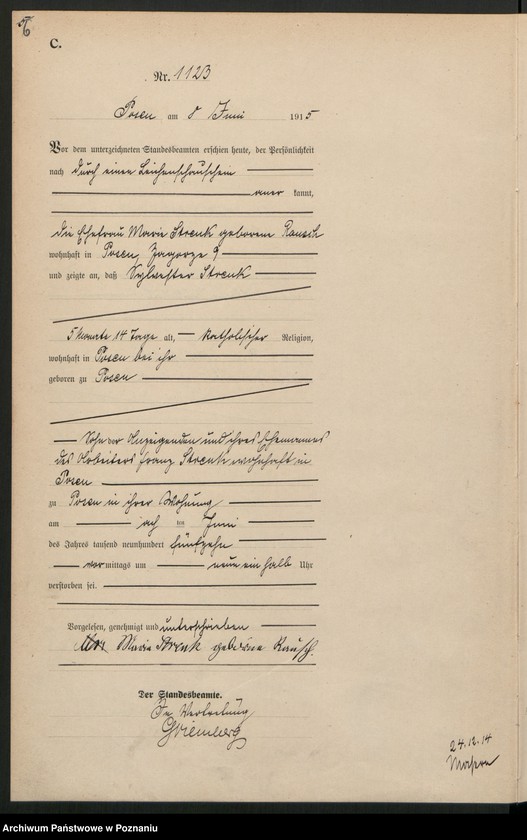 C.
Nr. 1123
Posen am 8 Juni 1915
Vor dem unterzeichneten Standesbeamten erschien heute, der Persönlichkeit
nach durch einen Leichenschauschein
aner kannt,
die Ehefrau Marie Strenk geborene Rausch
wohnhaft in Posen, Zagorze 9
und zeigte an, daß Sylwester Strenk
5 Monate 14 Tage alt, katholischer Religion,
wohnhaft in Posen bei ihr
geboren zu Posen
Sohn der Anzeigenden und ihres Ehemannes
des Arbeiters Franz Strenk wohnhaft in
Posen
zu Posen in ihrer Wohnung
am ten Juni
des Jahres tausend neunhundert fünfzehn
vor mittags um neun ein halb Uhr
verstorben sei.
Vorgelesen, genehmigt und unterschrieben
Marie Strenk geborene Rausch.
Der Standesbeamte.
In Vertretung
24.12.14
Archiwum Państwowe w Poznaniu